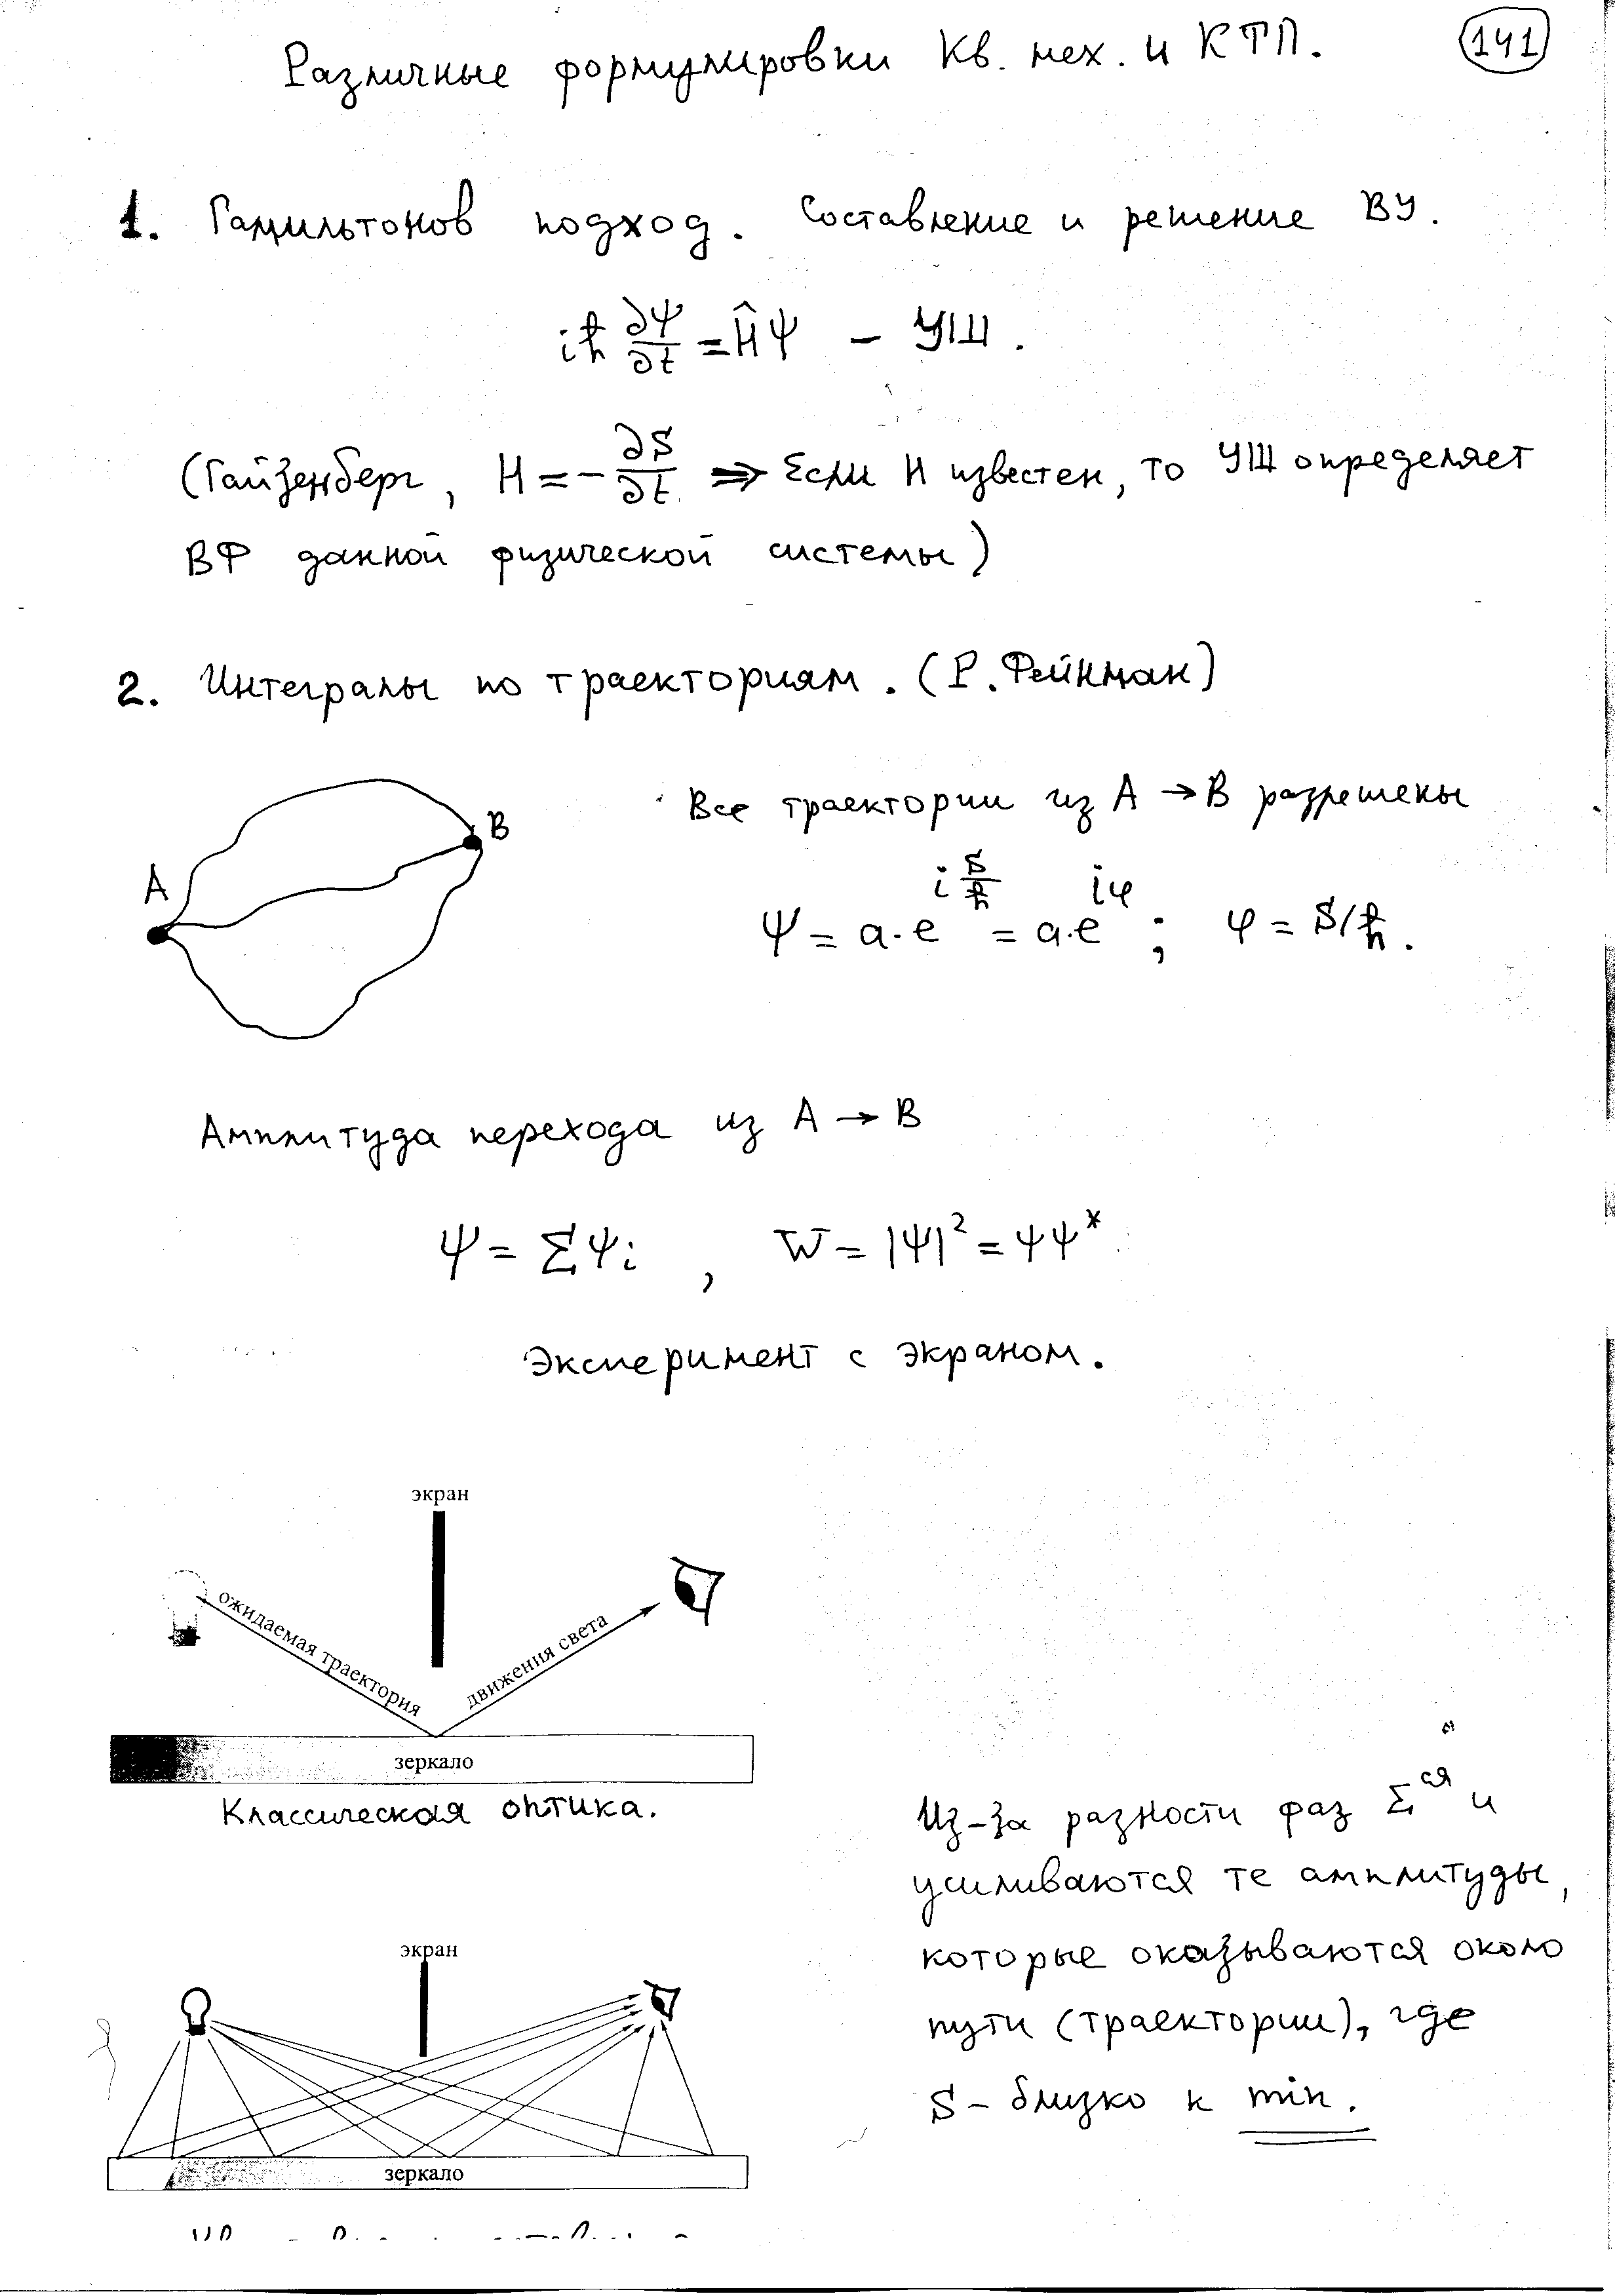 Различные формулировки Кв. мех. и КТП.
141
1. Гамильтонов подход. Составление и решение ВУ.
iħ ∂Ψ/∂t = ĤΨ – УШ.
(Гайзенберг, H = -∂S/∂t ⇒ Если H известен, то УШ определяет
ВФ данной физической системы)
2. Интегралы по траекториям. (Р. Фейнман)
Все траектории из A → B разрешены
A
B
Ψ = a·e^{i S/ħ} = a·e^{iφ}; φ = S/ħ.
Амплитуда перехода из A → B
Ψ = ΣΨi , W = |Ψ|² = ΨΨ*
Эксперимент с экраном.
экран
ожидаемая траектория
движения света
зеркало
Классическая оптика.
Из-за разности фаз Σ^{ся} и
усиливаются те амплитуды,
которые оказываются около
пути (траектории), где
S – близко к min.
экран
зеркало